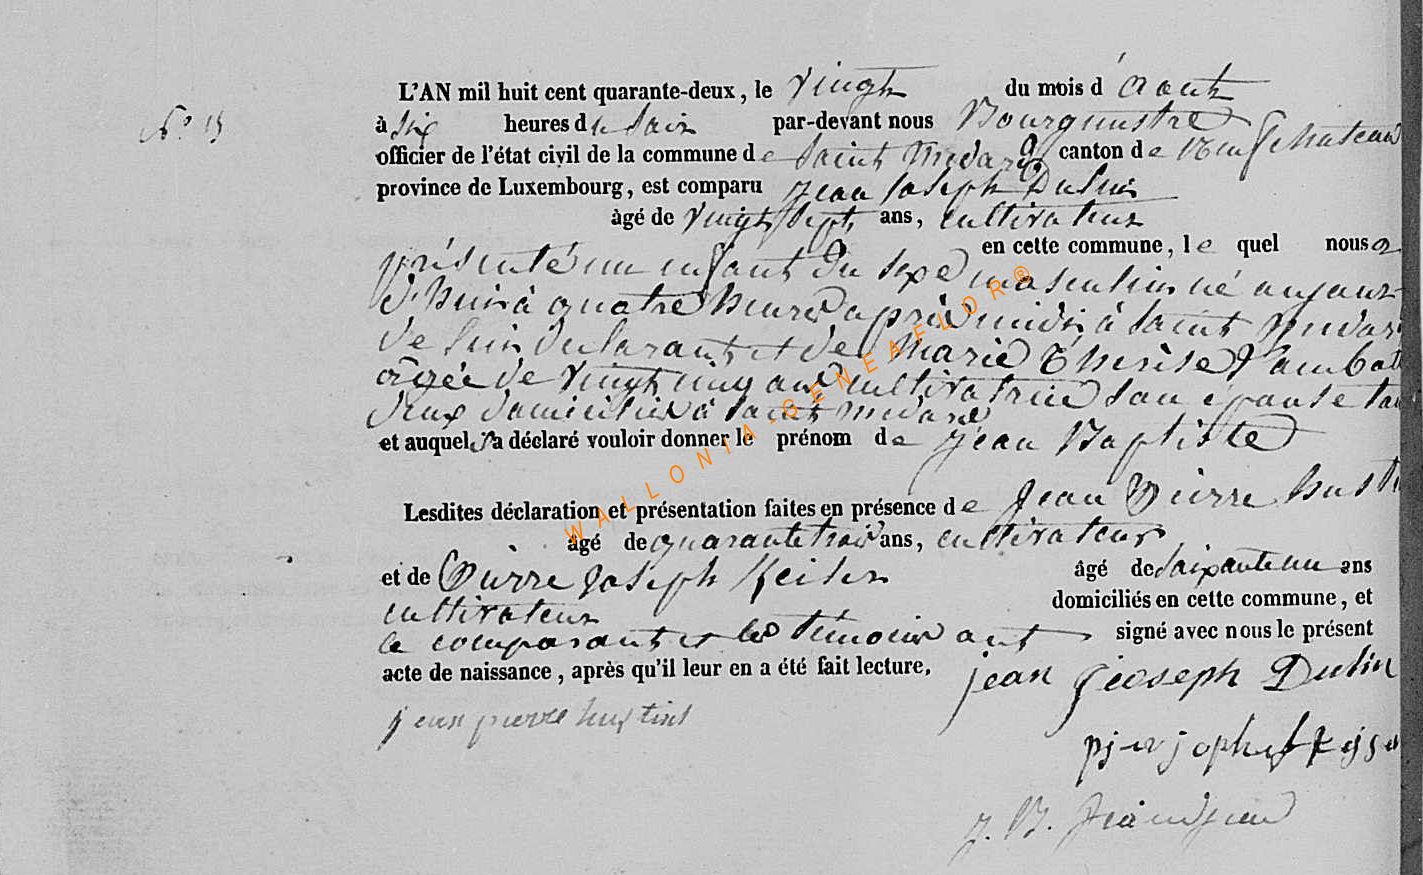 N° 15
L'AN mil huit cent quarante-deux, le vingt du mois d'aout
à six heures du soir par-devant nous Bourgmestre
officier de l'état civil de la commune de Saint Médard canton de Neufchateau
province de Luxembourg, est comparu Jean Joseph
àgé de vingt sept ans, cultivateur
en cette commune, le quel nous a
présenté un enfant du sexe masculin né aujour
d'hui à quatre heures après midi à Saint Médard
de lui déclarant et de Marie Thérèse
agée de vingt cinq ans cultivatrice son épouse tou
deux domiciliés à Saint Médard
et auquel il a déclaré vouloir donner le prénom de Jean Baptiste
Lesdites déclaration et présentation faites en présence de Jean Pierre
âgé de quarante trois ans, cultivateur
et de Pierre Joseph âgé de soixante un ans
cultivateur domiciliés en cette commune, et
le comparant et les témoins ont signé avec nous le présent
acte de naissance, après qu'il leur en a été fait lecture.
jean joseph Dulin
jean pierre
J. B.
WALLONIA-GENEAFLOR®